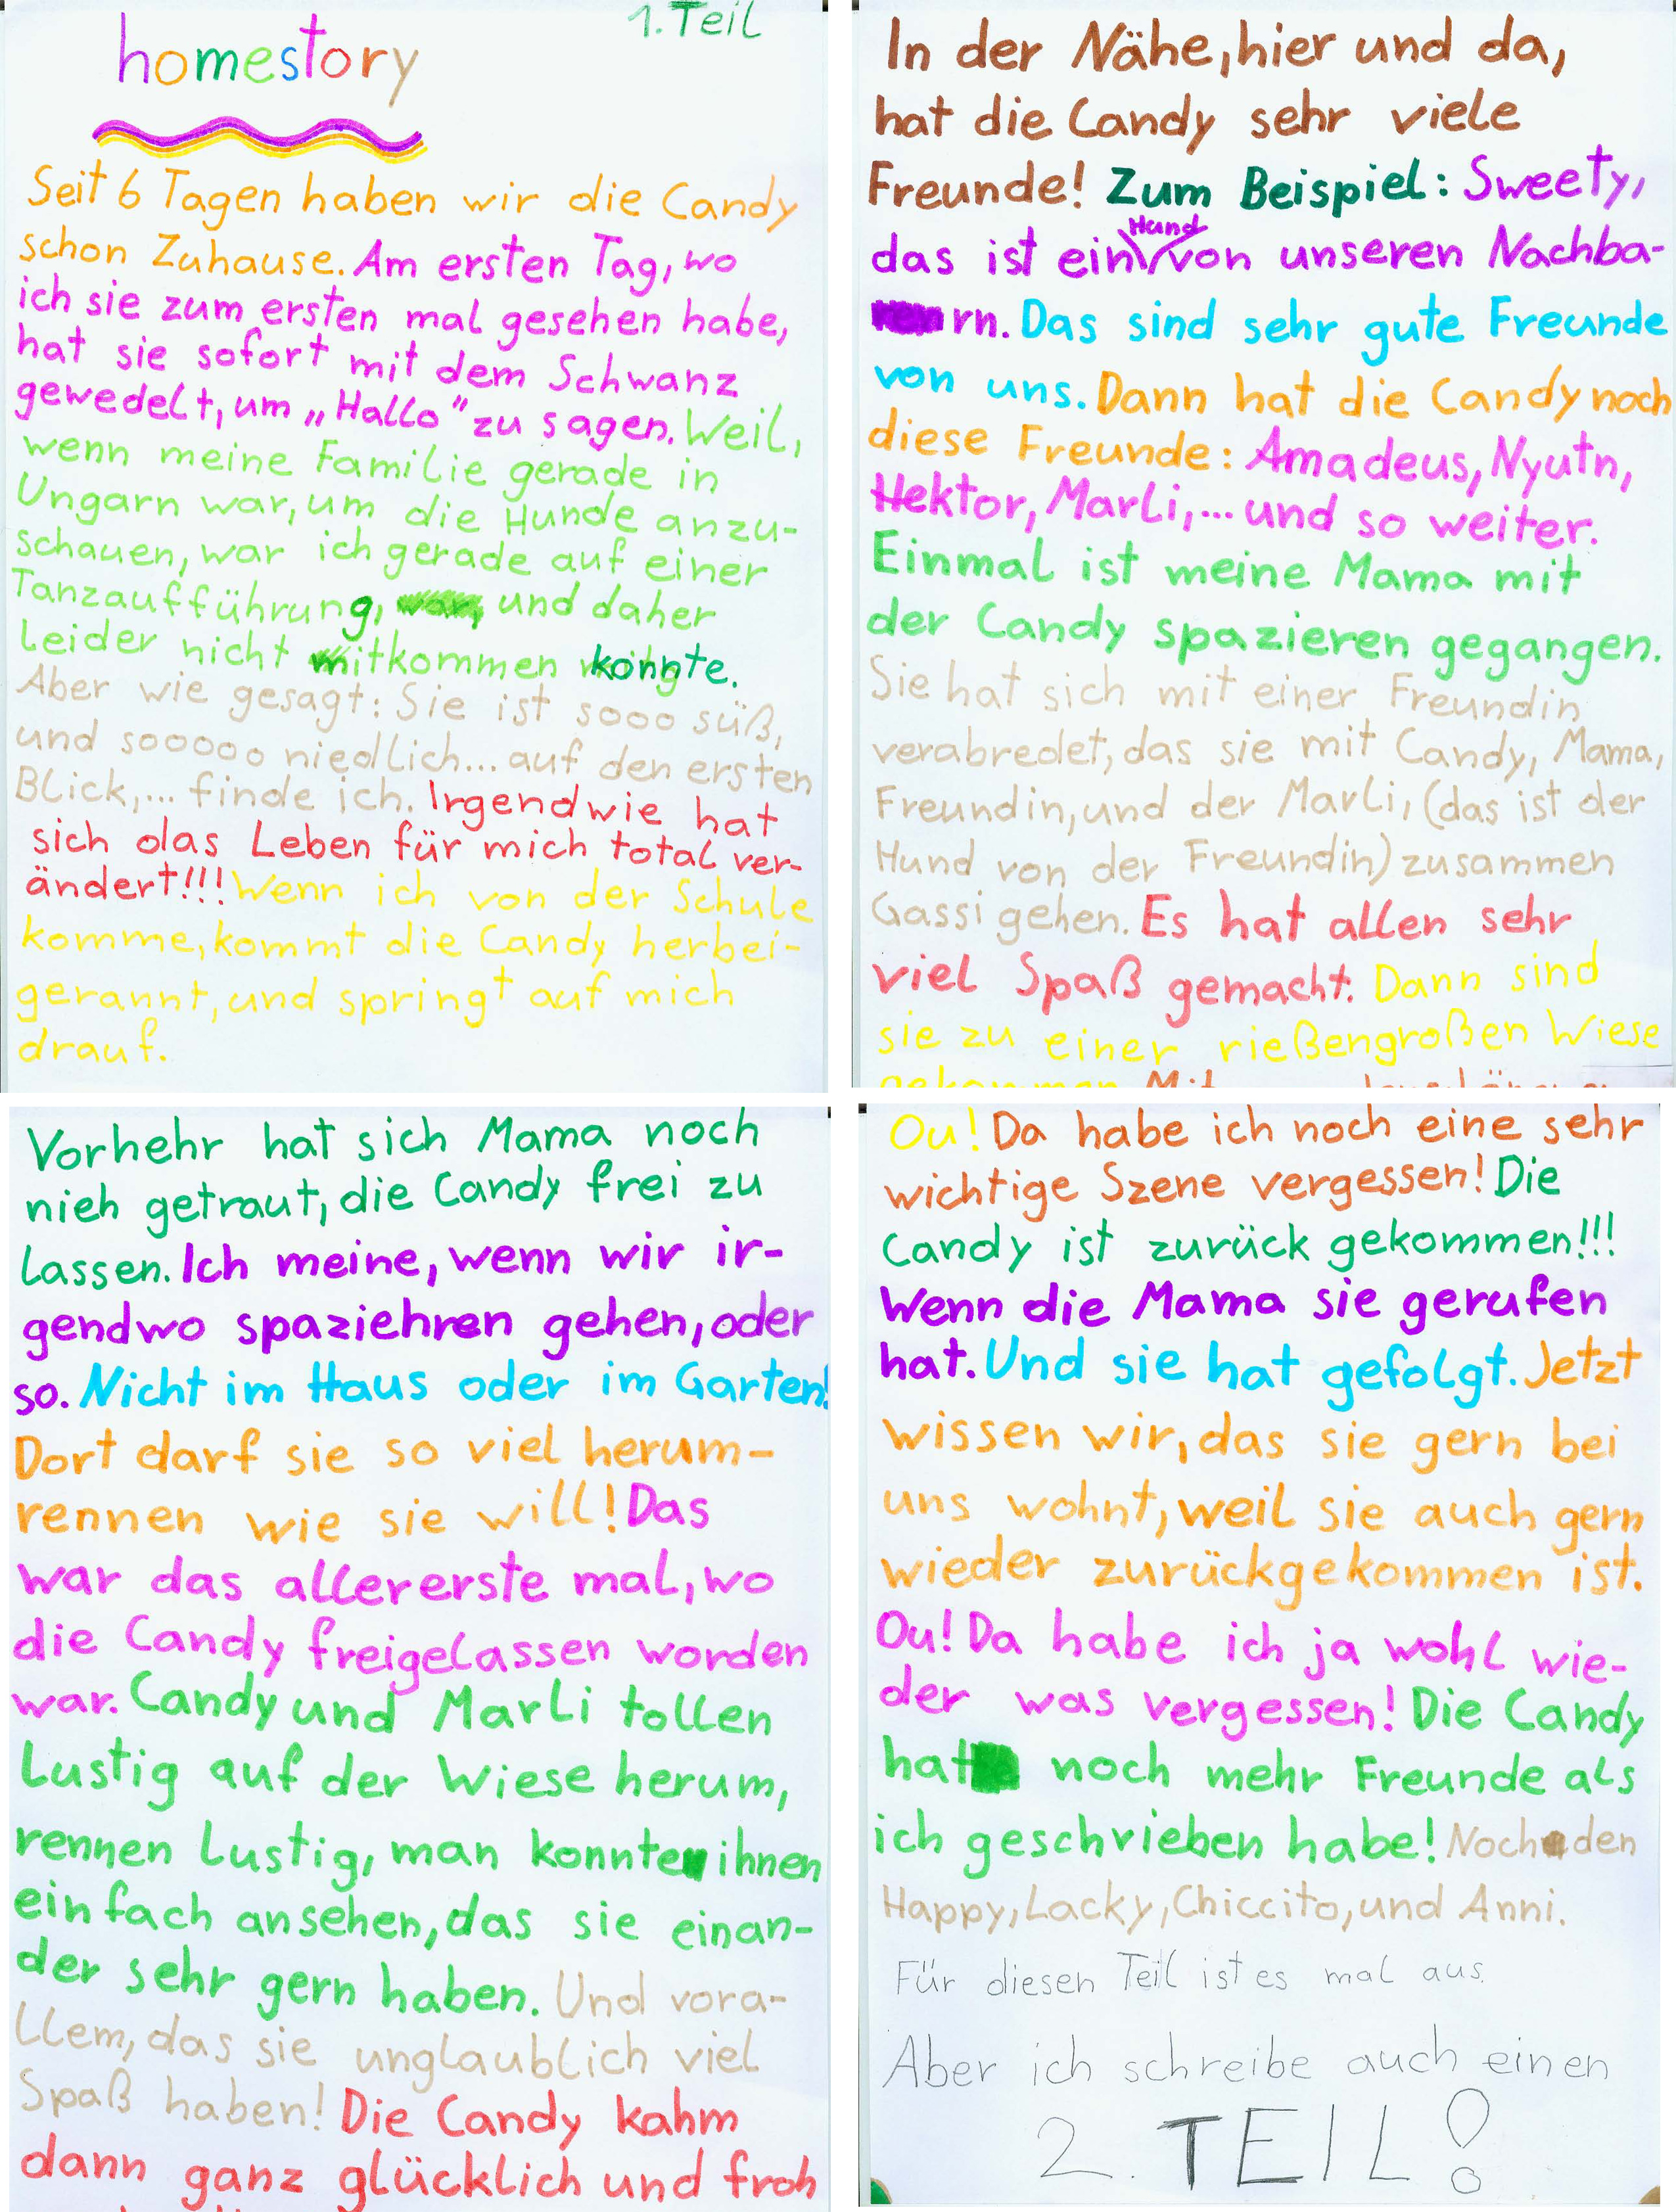 1. Teil
homestory
Seit 6 Tagen haben wir die Candy
schon Zuhause. Am ersten Tag, wo
ich sie zum ersten mal gesehen habe,
hat sie sofort mit dem Schwanz
gewedelt, um „Hallo" zu sagen. Weil,
wenn meine Familie gerade in
Ungarn war, um die Hunde anzu-
schauen, war ich gerade auf einer
Tanzaufführung, und daher
leider nicht mitkommen konnte.
Aber wie gesagt: Sie ist sooo süß,
und sooooo niedlich... auf den ersten
Blick,... finde ich. Irgendwie hat
sich das Leben für mich total ver-
ändert!!! Wenn ich von der Schule
komme, kommt die Candy herbei-
gerannt, und springt auf mich
drauf.
In der Nähe, hier und da,
hat die Candy sehr viele
Freunde! Zum Beispiel: Sweety,
das ist ein Hund von unseren Nachba-
rn. Das sind sehr gute Freunde
von uns. Dann hat die Candy noch
diese Freunde: Amadeus, Nyutn,
Hektor, Marli,... und so weiter.
Einmal ist meine Mama mit
der Candy spazieren gegangen.
Sie hat sich mit einer Freundin
verabredet, das sie mit Candy, Mama,
Freundin, und der Marli, (das ist der
Hund von der Freundin) zusammen
Gassi gehen. Es hat allen sehr
viel Spaß gemacht. Dann sind
sie zu einer rießengroßen Wiese
gekommen. Mit
Vorhehr hat sich Mama noch
nieh getraut, die Candy frei zu
lassen. Ich meine, wenn wir ir-
gendwo spaziehren gehen, oder
so. Nicht im Haus oder im Garten!
Dort darf sie so viel herum-
rennen wie sie will! Das
war das allererste mal, wo
die Candy freigelassen worden
war. Candy und Marli tollen
Lustig auf der Wiese herum,
rennen Lustig, man konnte ihnen
einfach ansehen, das sie einan-
der sehr gern haben. Und vora-
llem, das sie unglaublich viel
Spaß haben! Die Candy kahm
dann ganz glücklich und froh
Ou! Da habe ich noch eine sehr
wichtige Szene vergessen! Die
Candy ist zurück gekommen!!!
Wenn die Mama sie gerufen
hat. Und sie hat gefolgt. Jetzt
wissen wir, das sie gern bei
uns wohnt, weil sie auch gern
wieder zurückgekommen ist.
Ou! Da habe ich ja wohl wie-
der was vergessen! Die Candy
hat noch mehr Freunde als
ich geschrieben habe! Noch den
Happy, Lacky, Chiccito, und Anni.
Für diesen Teil ist es mal aus.
Aber ich schreibe auch einen
2. TEIL!